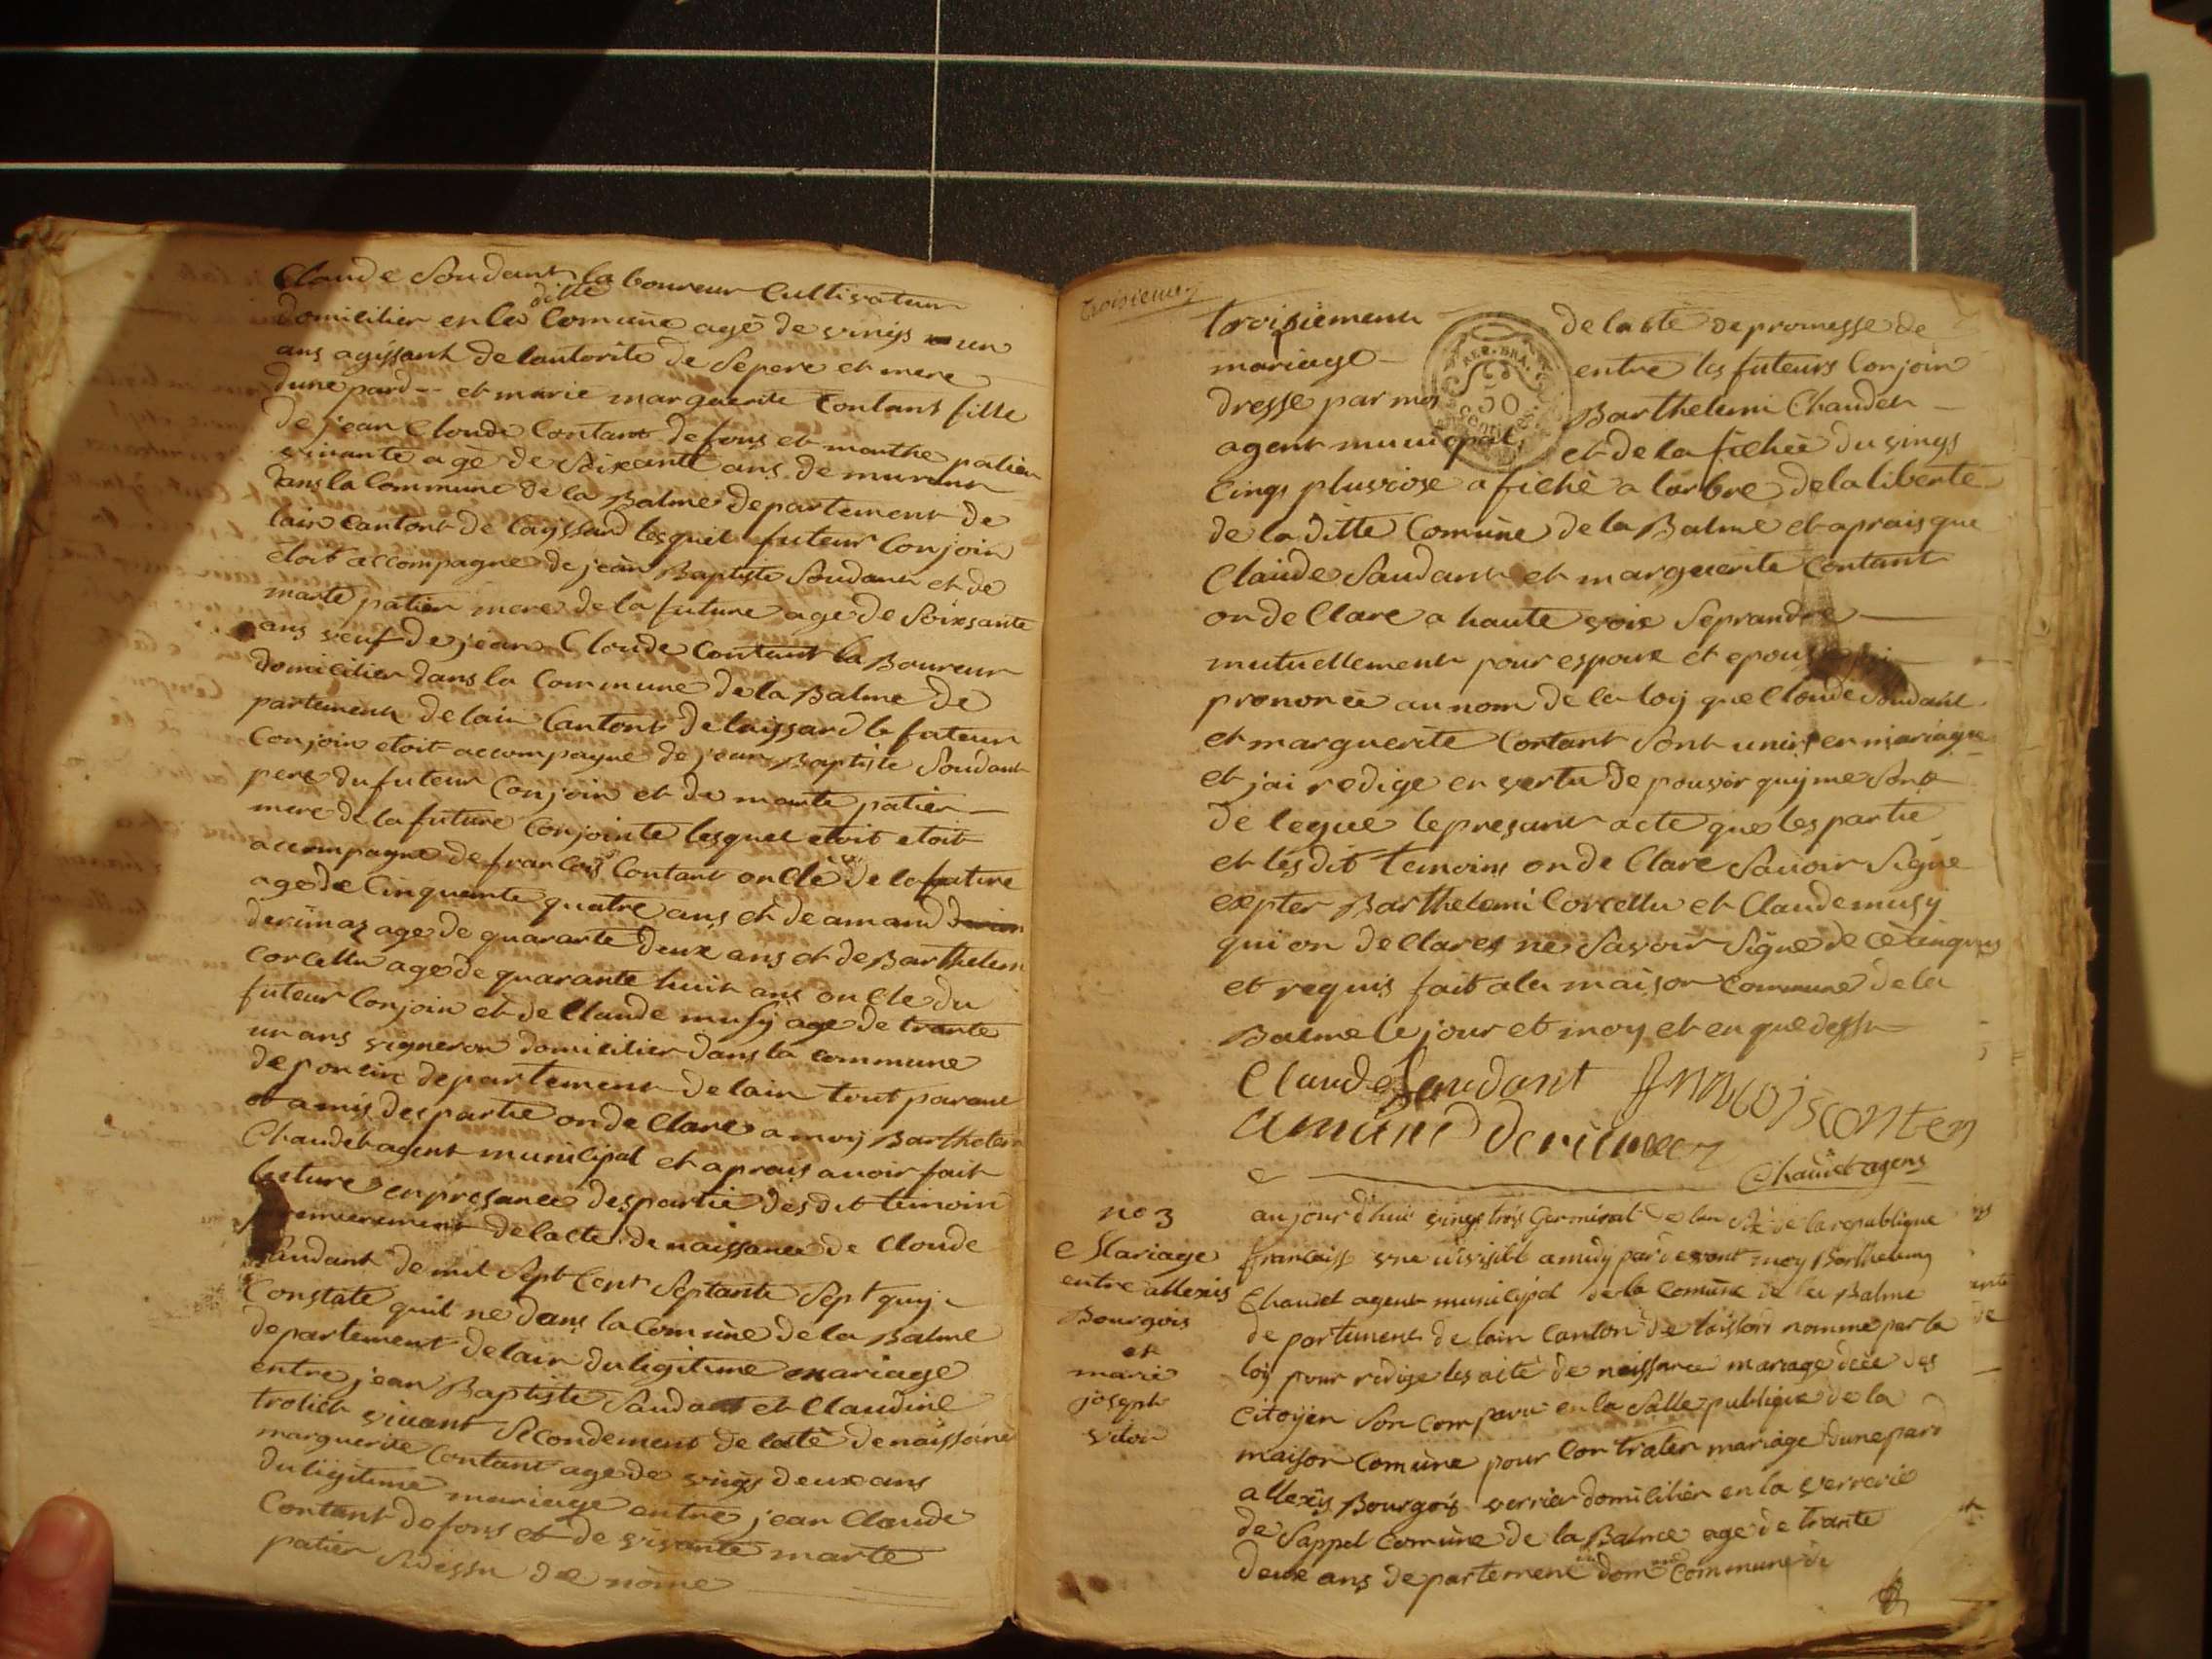 Claude Soudant la boureur Cultivateur
ditte
domicilier en la Comune agé de vingt un
ans agissant de lautorite de Sepere et mere
dune pard et marie marguerite Contant fille
de jean Cloude Contant defons et marthe patier
vivante agé de Soixante ans de murant
dans la Commune de la Balme departement de
lain Cantont de Cayssard lesquel futeur Conjoin
etoit accompagne de jean Baptiste Soudant et de
marte patier mere de la future age de Soixsante
ans veuf de jean Cloude Contant la Boureur
domicilier dans la Commune de la Balme de
partement delain Cantont de laissard le futeur
Conjoin etoit accompagne de jean Baptiste Soudant
pere du futeur Conjoin et de marte patier
mere de la future Conjointe lesquel etoit etoit
accompagne de francois Contant oncle de la future
age de Cinquante quatre ans et de amand
derimaz age de quarante deux ans et de Barthelem
Corcellu age de quarante huit ans oncle du
futeur Conjoin et de Claude musy age de trante
un ans vigneron domicilier dans la commune
de poncin departement delain tout parant
et amis des partie on de Clare a moy Barthelem
Chaudet agent municipal et aprais avoir fait
lecture en presance des partie des dit temoin
premierement de lacte de naissance de Cloude
Saudant de mil Sept Cent Septante Sept quy
Constate quil ne dans la Comune de la Balme
departement delain du legitime mariage
entre jean Baptiste Saudant et Claudine
troliet vivant Secondement de lacte denaissance
marguerite Contant age de vingt deux ans
du ligitime mariage entre jean Claude
Contant defons et de vivante marte
patier Sidessu de nome
troisieme
troisiement de lacte de promesse de
mariage entre les futeurs Conjoin
dresse par moi Barthelemi Chaudet
agent municipal et de la fichée du vingt
REP. FRA.
50
CENTIMES
Cinq pluviose afiché a larbre de la liberte
de la ditte Comune de la Balme et aprais que
Claude Saudant et marguerite Contant
on de Clare a haute voix Seprandre
mutuellement pour espoux et
prononce au nom de la loy que Cloude Soudant
et marguerite Contant Sont unis en mariage
et jai redige en vertu de pouvoir quy me Sont
de legue le presant acte que les partie
et les dit temoins on de Clare Savoir Signe
expter Barthelemi Corcellu et Claude musy
qui on de Clares ne Savoir Signe de
et requis fait a la maison commune de la
Balme le jour et moy et en que dessu
Claude Saudant francois conten
amand derimaz
Chaudet agent
no 3
Mariage
entre allexis
Bourgois
et
marie
joseph
vdou
aujourdhui vingt trois Germinal de lan de la republique
francaise une amidy par devant moy Barthelemy
Chaudet agent municipal de la Comune de la Balme
de partement de lain Canton de laissard nomme par la
loy pour redige les acte de naissance mariage dece des
Citoyen Son Comparu en la Salle publique de la
maison Comune pour Contrater mariage dune pard
allexis Bourgois verrier domicilier en la verrerie
de Sappel Comune de la Balme age de trante
deux ans departement Commune de